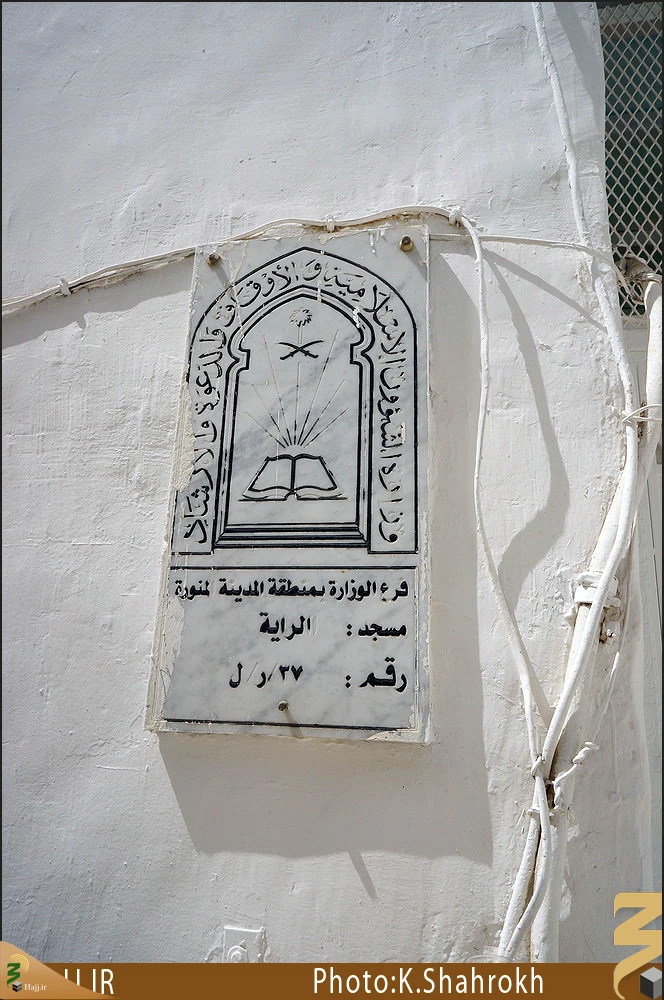 وزارة الشؤون الإسلامية والأوقاف والدعوة والإرشاد
فرع الوزارة بمنطقة المدينة لمنورة
مسجد : الراية
رقم : ٣٧/ر/ل
JJ.IR
Photo:K.Shahrokh
Hajj.ir